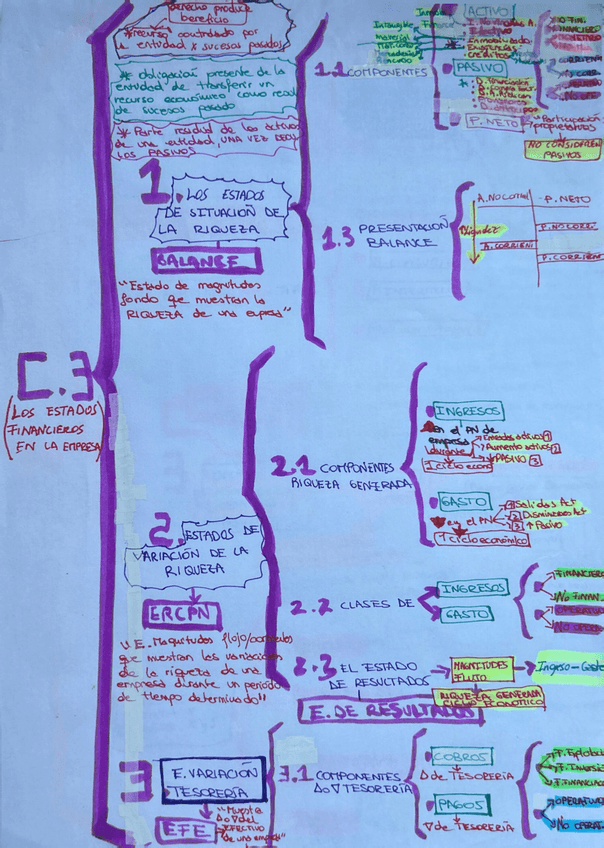 derecho produce
beneficio
*recurso controlado por
entidad x sucesos pasados
* obligación presente de la
entidad de transferir un
recurso económico como
de sucesos pasado
* Parte residual de los activos
de una entidad, UNA VEZ
LOS PASIVOS
1. LOS ESTADOS
DE SITUACIÓN DE
LA RIQUEZA
BALANCE
"Estado de magnitudes
fondo que muestran la
RIQUEZA de una empresa"
1.1 COMPONENTES
ACTIVO
PASIVO
P. NETO
Participación
propietarios
NO CONSIDEREN
PASIVOS
1.3 PRESENTACIÓN
BALANCE
A. NO CORRI
P. NETO
liquidez
P. NO CORRI
A. CORRIENT
P. CORRIENT
C.3
(LOS ESTADOS
FINANCIEROS
EN LA EMPRESA)
2. ESTADOS DE
VARIACIÓN DE LA
RIQUEZA
ERCPN
que muestran las variaciones
de la riqueza de una
empresa durante un periodo
de tiempo determinado"
2.1 COMPONENTES
RIQUEZA GENERADA
INGRESOS
en el PN de
empresa
durante
1 ciclo econ
Entradas activos 1
Aumento activos 2
↓ PASIVO 3
GASTO
en el PN
1 Salidas Act
2 Disminuciones Act
3 ↑ Pasivo
1 ciclo económico
2.2 CLASES DE
INGRESOS
GASTO
FINANCIERO
NO FINAN
OPERATIV
NO OPERA
2.3 EL ESTADO
DE RESULTADOS
MAGNITUDES
FLUJO
Ingreso - Gasto
RIQUEZA GENERADA
CICLO ECONÓMICO
E. DE RESULTADOS
3 E. VARIACIÓN
TESORERÍA
EFE
"Muestra
Δ o ∇ del
EFECTIVO
de una empresa"
3.1 COMPONENTES
Δ o ∇ TESORERÍA
COBROS
Δ de TESORERÍA
PAGOS
∇ de TESORERÍA
F. Explotac
F. Inversió
F. FINANCIAC
OPERATIVO
NO OPERAT